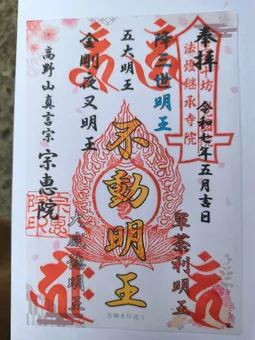 奉拝
令和七年五月吉日
法燈継承寺院
降三世明王
軍荼利明王
五大明王
不動明王
金剛夜叉明王
大威徳明王
高野山真言宗
宗恵院